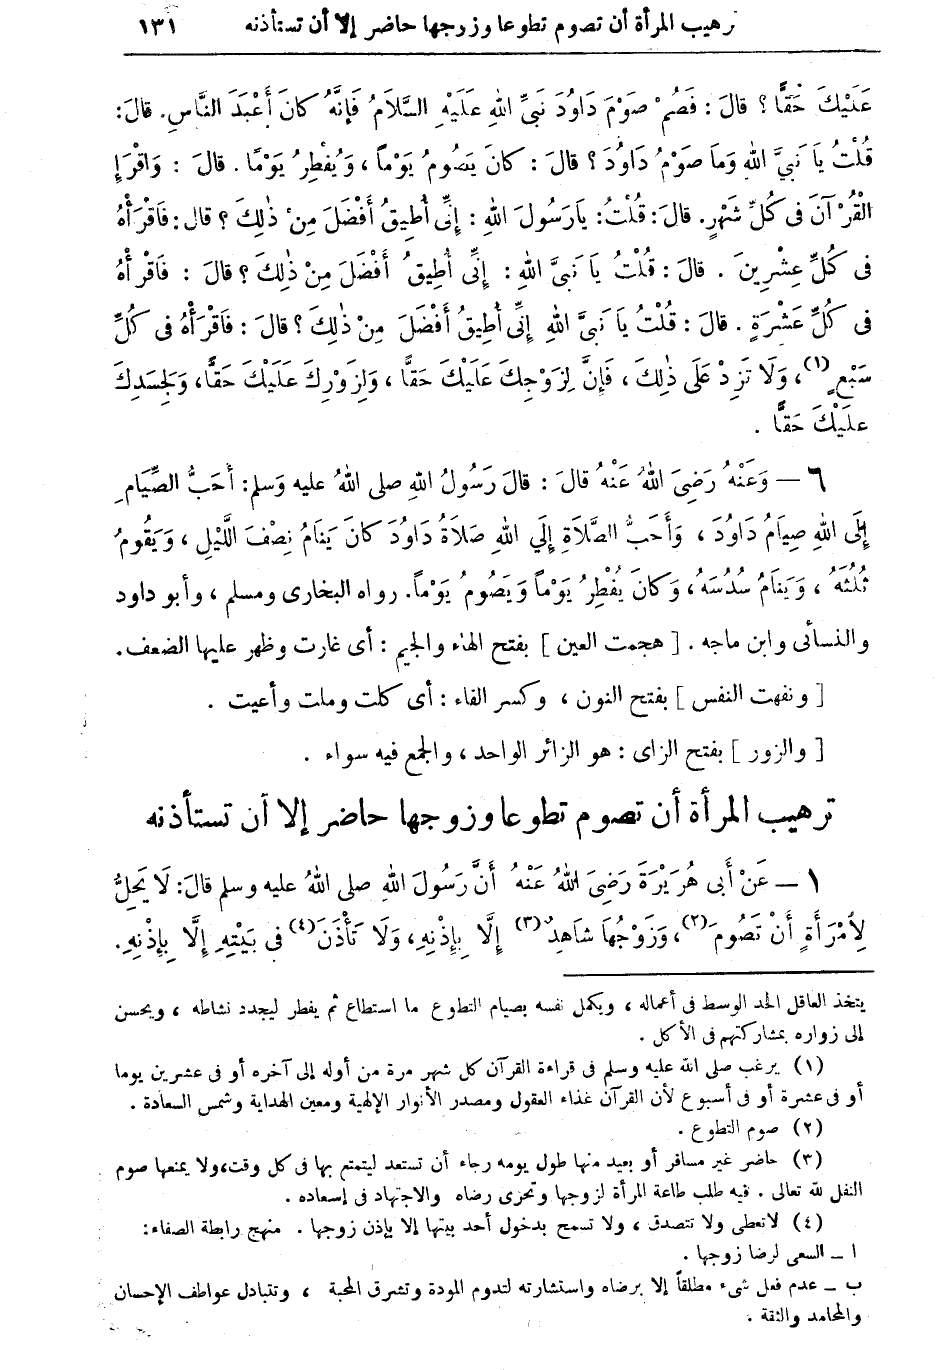 ترهيب المرأة أن تصوم تطوعا وزرجها حاضر إلا أن تستأذنه ١٣١
عَلَيْكَ حَقًّا ؟ قالَ : فَصُمْ صَوْمَ دَاوُدَ نَبِيِّ اللهِ عَلَيْهِ السَّلَامُ فَإِنَّهُ كانَ أَعْبَدَ النَّاسِ . قالَ :
قُلْتُ يَا نَبِيَّ اللهِ وَمَا صَوْمُ دَاوُدَ ؟ قالَ : كانَ يَصُومُ يَوْماً ، وَيُفْطِرُ يَوْمًا . قالَ : وَاقْرَإِ
الْقُرْآنَ فى كُلِّ شَهْرٍ . قالَ : قُلْتُ : يَارَسُولَ اللهِ : إِنِّى أُطِيقُ أَفْضَلَ مِنْ ذٰلِكَ ؟ قال : فَاقْرَأْهُ
فى كُلِّ عِشْرِينَ . قالَ : قُلْتُ يَا نَبِيَّ اللهِ : إِنِّى أُطِيقُ أَفْضَلَ مِنْ ذٰلِكَ ؟ قالَ : فَاقْرَأْهُ
فى كُلِّ عَشْرَةٍ . قالَ : قُلْتُ يَا نَبِيَّ اللهِ إِنِّى أُطِيقُ أَفْضَلَ مِنْ ذٰلِكَ ؟ قالَ : فَاقْرَأْهُ فى كُلِّ
سَبْعٍ (١) ، وَلَا تَزِدْ عَلَى ذٰلِكَ ، فَإِنَّ لِزَوْجِكَ عَلَيْكَ حَقًّا ، وَلِزَوْرِكَ عَلَيْكَ حَقًّا ، وَلِجَسَدِكَ
علَيْكَ حَقًّا .
٦ — وَعَنْهُ رَضِىَ اللهُ عَنْهُ قالَ : قالَ رَسُولُ اللهِ صلى اللهُ عليه وَسلم : أَحَبُّ الصِّيَامِ
إِلَى اللهِ صِيَامُ دَاوُدَ ، وَأَحَبُّ الصَّلَاةِ إِلَي اللهِ صَلَاةُ دَاوُدَ كانَ يَنَامُ نِصْفَ اللَّيْلِ ، وَيَقُومُ
ثُلُثَهُ ، وَيَنَامُ سُدُسَهُ ، وَكانَ يُفْطِرُ يَوْماً وَيَصُومُ يَوْماً . رواه البخارى ومسلم ، وأبو داود
والنسائى وابن ماجه . [ هجمت العين ] بفتح الهاء والجيم : أى غارت وظهر عليها الضعف .
[ ونفهت النفس ] بفتح النون ، وكسر الفاء : أى كلت وملت وأعيت .
[ والزور ] بفتح الزاى : هو الزائر الواحد ، والجمع فيه سواء .
ترهيب المرأة أن تصوم تطوعا وزوجها حاضر إلا أن تستأذنه
١ — عَنْ أَبى هُرَيْرَةَ رَضِىَ اللهُ عَنْهُ أَنَّ رَسُولَ اللهِ صلى اللهُ عليه وسلم قالَ : لَا يَحِلُّ
لِامْرَأَةٍ أَنْ تَصُومَ (٢) ، وَزَوْجُهَا شَاهِدٌ (٣) إِلَّا بِإِذْنِهِ ، وَلَا تَأْذَنَ (٤) فى بَيْتِهِ إِلَّا بِإِذْنِهِ .
يتخذ العاقل الحد الوسط فى أعماله ، ويكمل نفسه بصيام التطوع ما استطاع ثم يفطر ليجدد نشاطه ، ويحسن
إلى زواره بمشاركتهم فى الأكل .
(١) يرغب صلى الله عليه وسلم فى قراءة القرآن كل شهر مرة من أوله إلى آخره أو فى عشرين يوما
أو فى عشرة أو فى أسبوع لأن القرآن غذاء العقول ومصدر الأنوار الإلهية ومعين الهداية وشمس السعادة .
(٢) صوم التطوع .
(٣) حاضر غير مسافر أو بعيد منها طول يومه رجاء أن تستعد ليتمتع بها فى كل وقت ، ولا يمنعها صوم
النفل لله تعالى . فيه طلب طاعة المرأة لزوجها وتحرى رضاه والاجتهاد فى إسعاده .
(٤) لاتعطى ولا تتصدق ، ولا تسمح بدخول أحد بيتها إلا بإذن زوجها . منهج رابطة الصفاء :
ا — السعى لرضا زوجها .
ب — عدم فعل شىء مطلقاً إلا برضاه واستشارته لتدوم المودة وتشرق المحبة ، وتتبادل عواطف الإحسان
والمحامد والثقة .